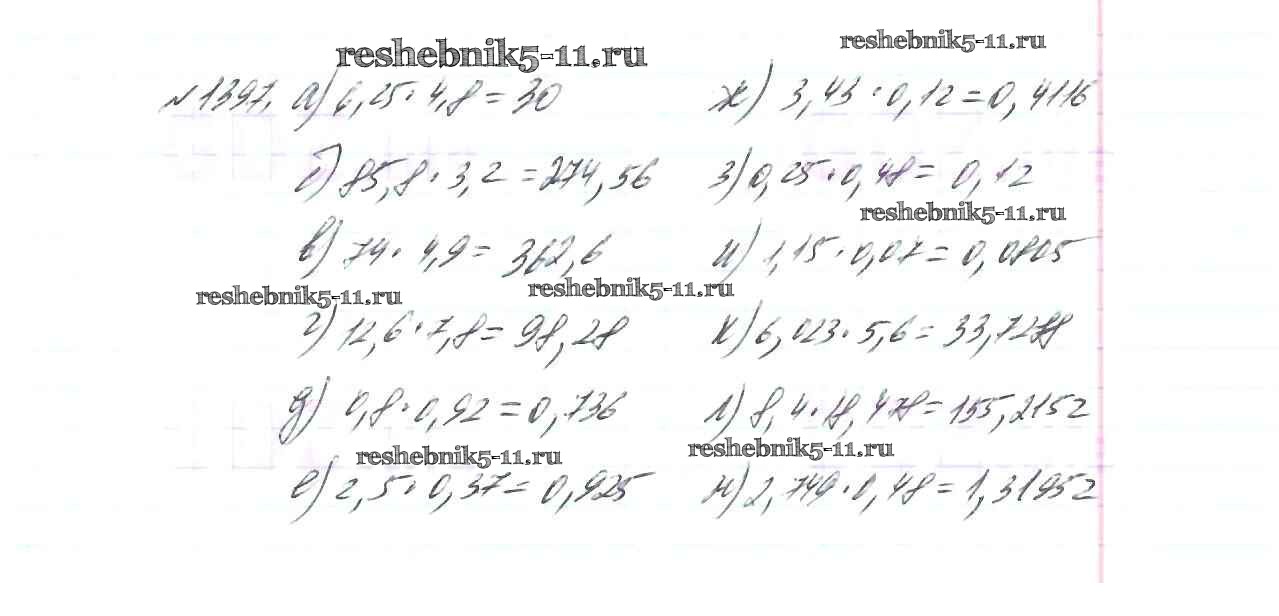 reshebnik5-11.ru
reshebnik5-11.ru
№1397. а) 6,25·4,8=30
ж) 3,43·0,12=0,4116
б) 85,8·3,2=274,56
з) 0,25·0,48=0,12
reshebnik5-11.ru
в) 74·4,9=362,6
и) 1,15·0,07=0,0805
reshebnik5-11.ru
reshebnik5-11.ru
г) 12,6·7,8=98,28
к) 6,023·5,6=33,7288
д) 0,8·0,92=0,736
л) 8,4·18,478=155,2152
reshebnik5-11.ru
reshebnik5-11.ru
е) 2,5·0,37=0,925
м) 2,749·0,48=1,31952